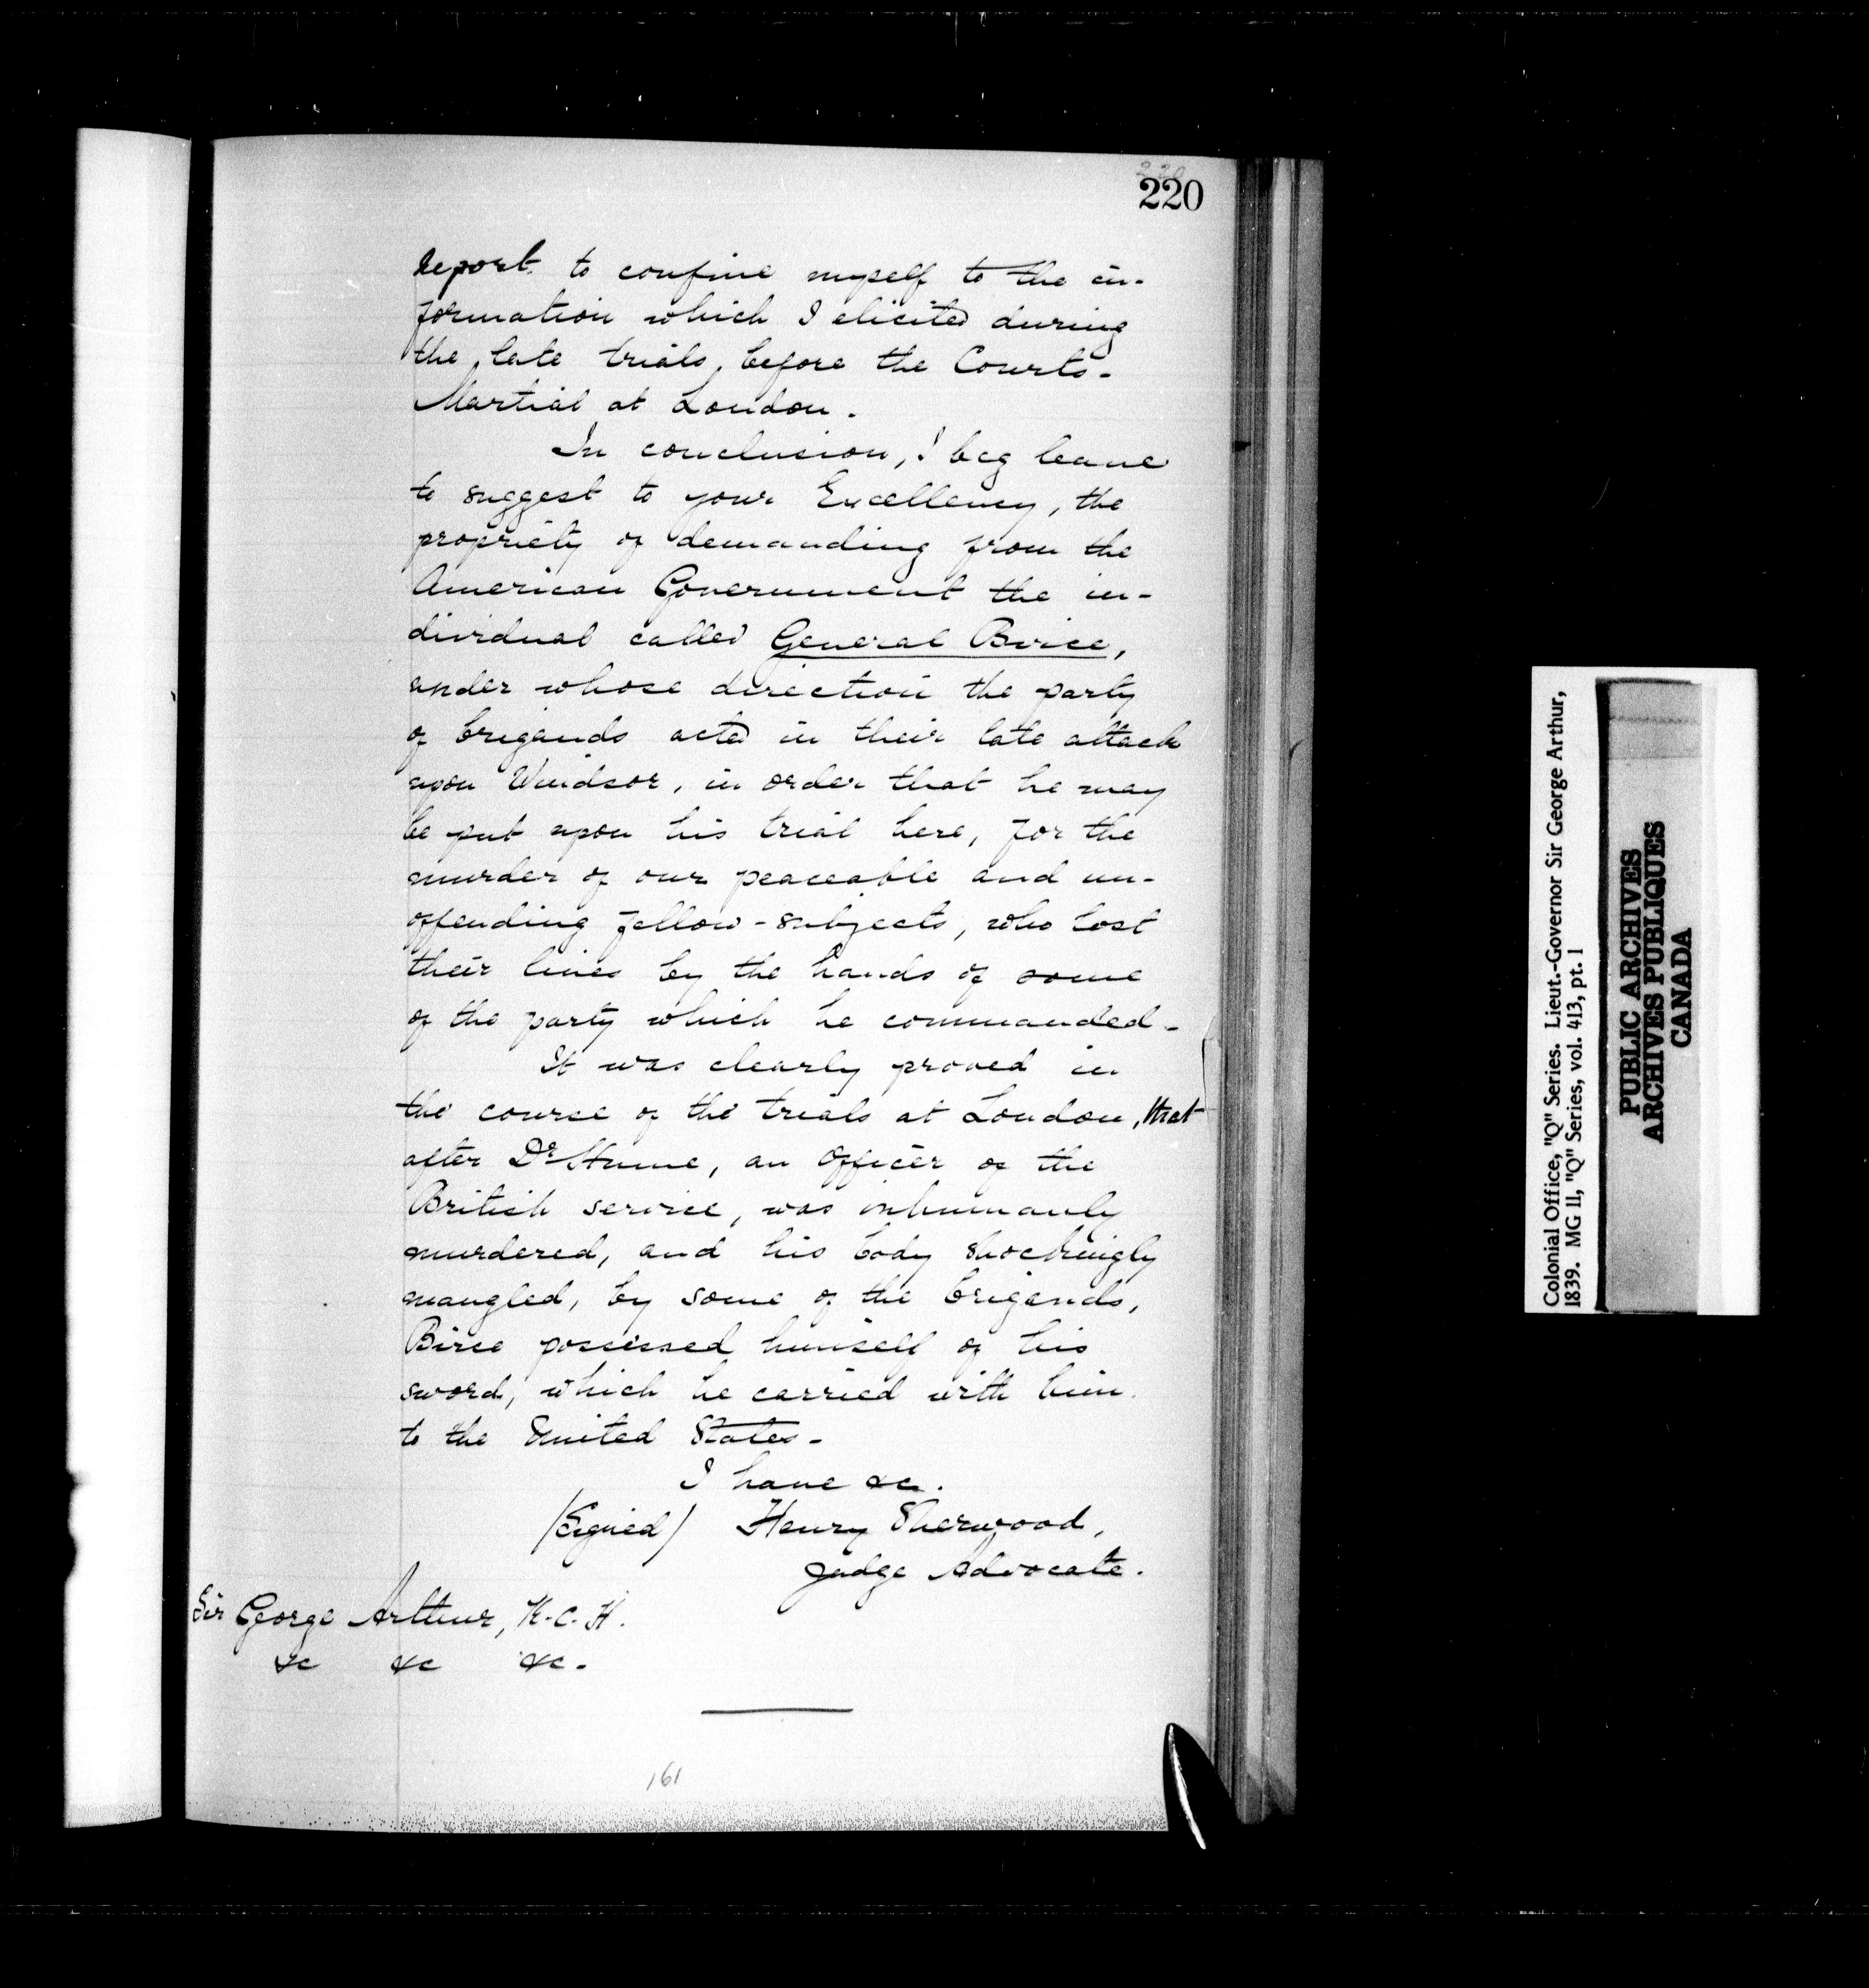 220
220
report to confine myself to the in-
formation which I elicited during
the late trials, before the Courts-
Martial at London.
In conclusion, I beg leave
to suggest to your Excellency, the
propriety of demanding from the
American Government the in-
dividual called General Birce,
under whose direction the party
of brigands acted in their late attack
upon Windsor, in order that he may
be put upon his trial here, for the
murder of our peaceable and un-
offending fellow-subjects, who lost
their lives by the hands of some
of the party which he commanded.
It was clearly proved in
the course of the trials at London, that
after Dr Hume, an Officer of the
British service, was inhumanly
murdered, and his body shockingly
mangled, by some of the brigands,
Birce possessed himself of his
sword, which he carried with him
to the United States.
I have &c.
(Signed) Henry Sherwood,
Judge Advocate.
Sir George Arthur, K.C.H.
&c &c &c.
161
Colonial Office, "Q" Series. Lieut.-Governor Sir George Arthur,
1839. MG 11, "Q" Series, vol. 413, pt. 1
PUBLIC ARCHIVES
ARCHIVES PUBLIQUES
CANADA